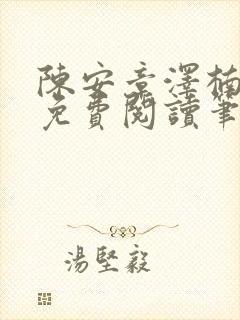 陳安章澤楠
免費閱讀筆
湯堅毅